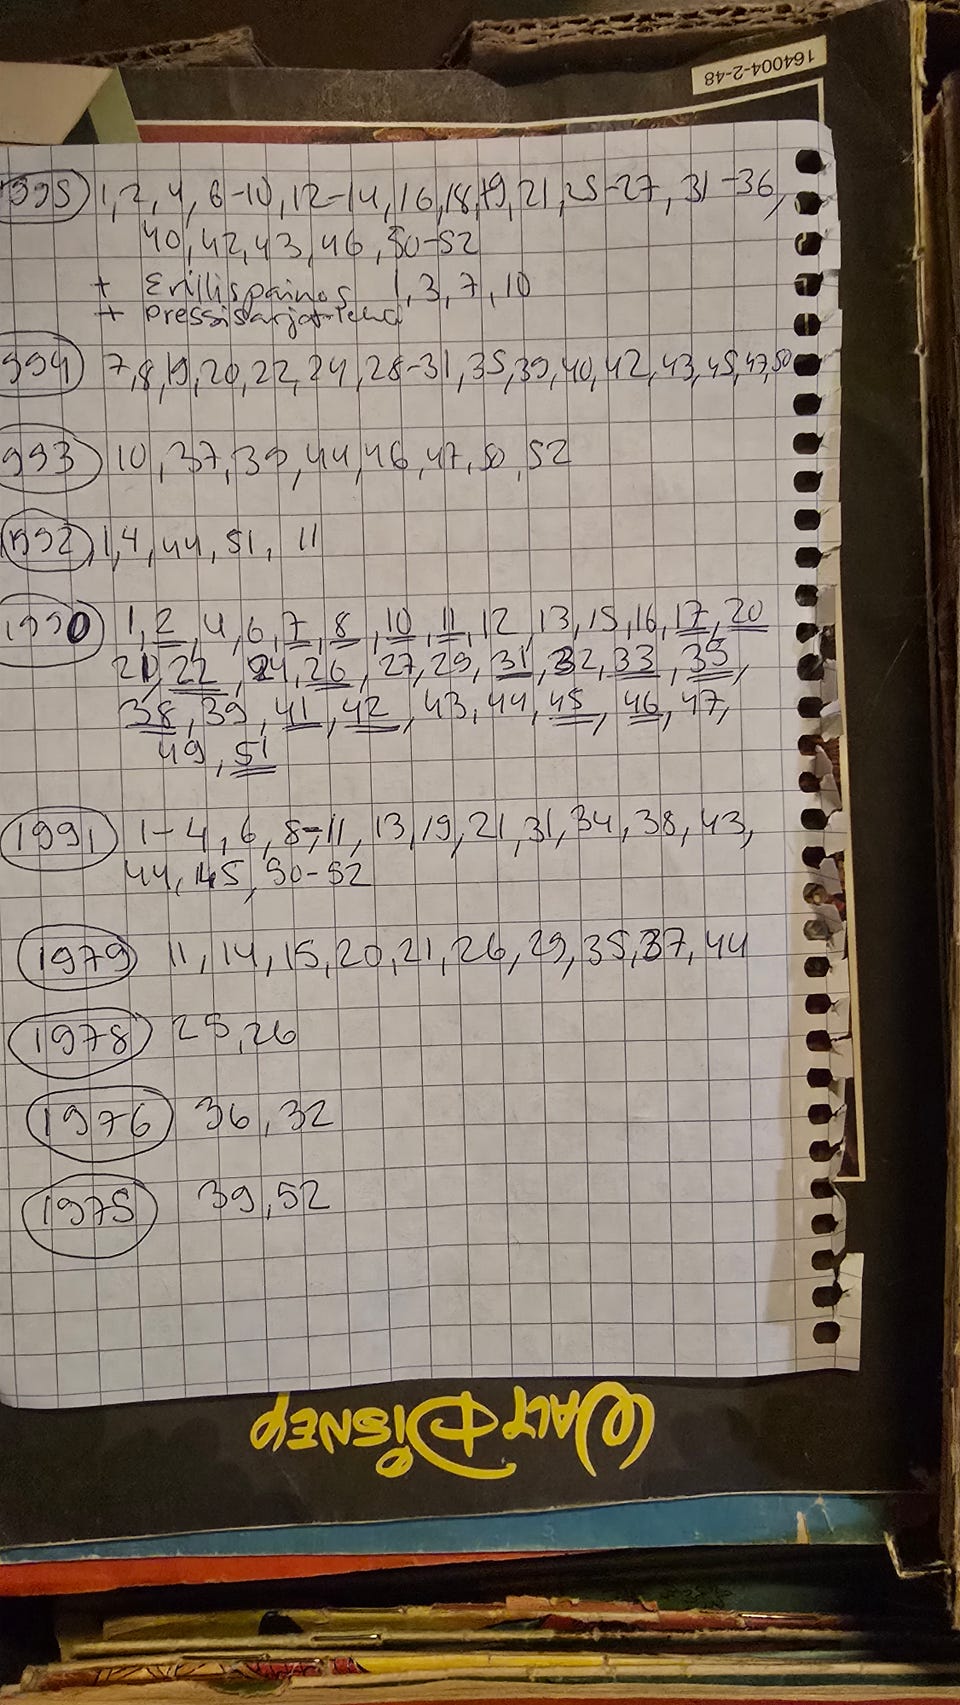 164004-2-48
1995 1, 2, 4, 6-10, 12-14, 16, 18, 19, 21, 25-27, 31-36,
40, 42, 43, 46, 50-52
+ Erillispainos 1, 3, 7, 10
+ pressisarjat
1994 7, 8, 19, 20, 22, 24, 28-31, 35, 39, 40, 42, 43, 45, 47, 50
993 10, 37, 39, 44, 46, 47, 50, 52
1992 1, 4, 44, 51, 11
1990 1, 2, 4, 6, 7, 8, 10, 11, 12, 13, 15, 16, 17, 20
21, 22, 24, 26, 27, 29, 31, 32, 33, 35,
38, 39, 41, 42, 43, 44, 45, 46, 47,
49, 51
1991 1-4, 6, 8-11, 13, 19, 21, 31, 34, 38, 43,
44, 45, 50-52
1979 11, 14, 15, 20, 21, 26, 29, 35, 37, 44
1978 25, 26
1976 36, 32
1975 39, 52
WALT DISNEY